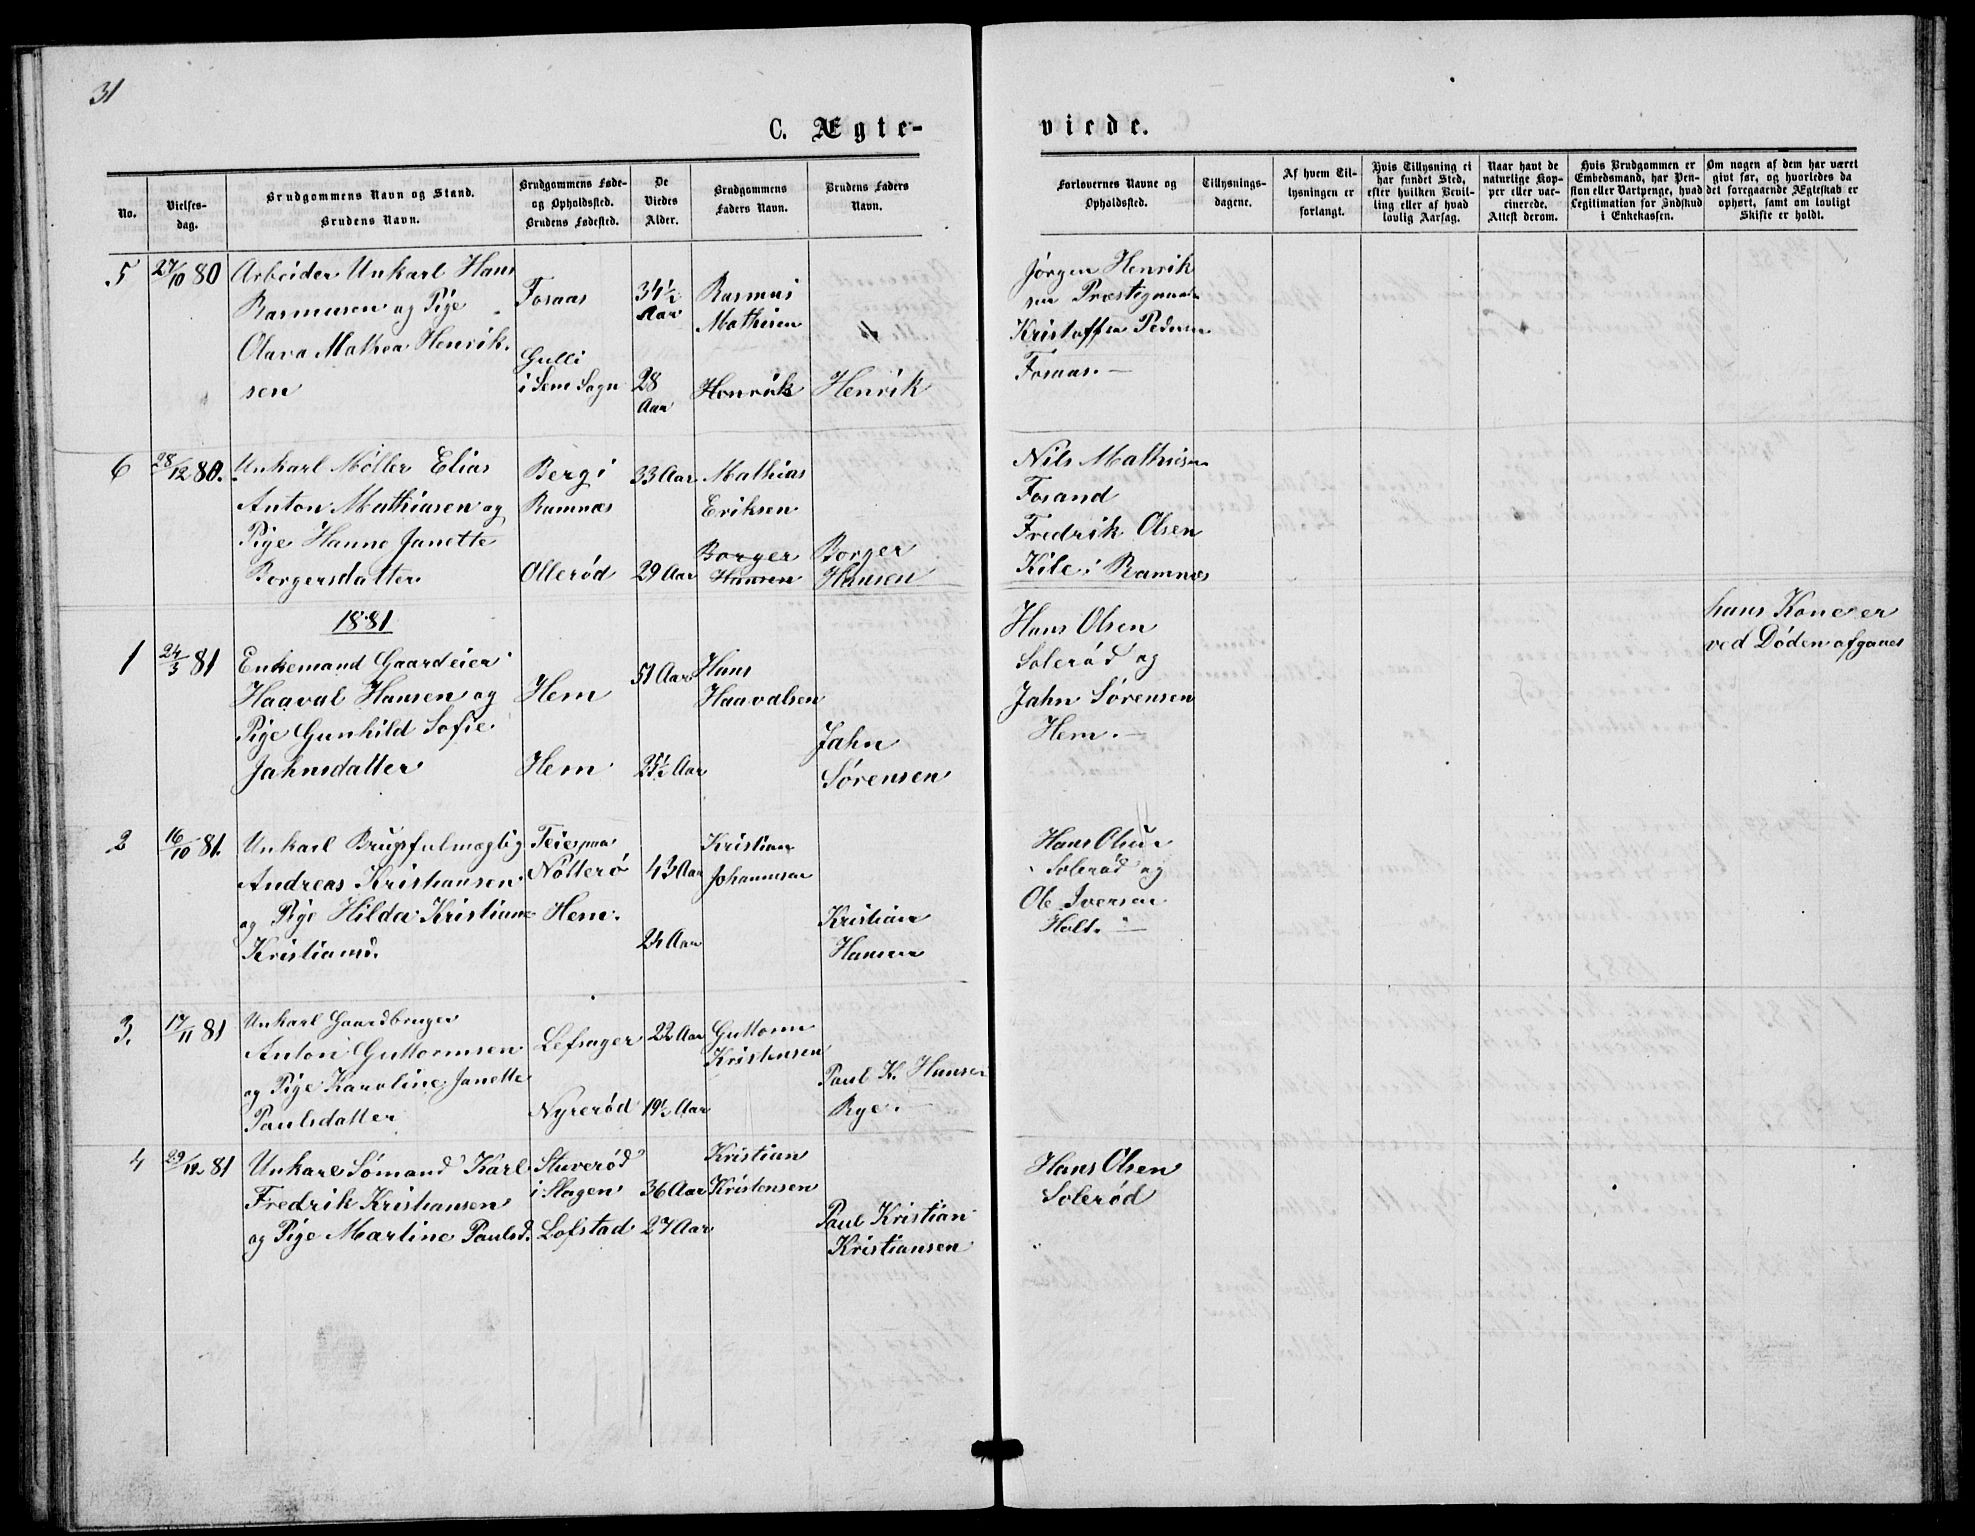 31
C. Ægte-
viede.
No.
Vielses-
dag.
Brudgommens Navn og Stand.
Brudens Navn.
Brudgommens Føde-
og Opholdssted.
Brudens Fødested.
De
Viedes
Alder.
Brudgommens
Faders Navn.
Brudens Faders
Navn.
Forlovernes Navne og
Opholdssted.
Tillysnings-
dagene.
Af hvem Til-
lysningen er
forlangt.
Hvis Tillysning ei
har fundet Sted,
efter hvilken Bevil-
ling eller af hvad
lovlig Aarsag.
Naar havt de
naturlige Kop-
per eller vac-
cinerede.
Attest derom.
Hvis Brudgommen er
Embedsmand, har Pen-
sion eller Vartpenge, hvad
Legitimation for Indskud
i Enkekassen.
Om nogen af dem har været
givt før, og hvorledes da
det foregaaende Ægteskab er
ophørt, samt om lovligt
Skifte er holdt.
5
27/10 80
Arbeider Unkarl Hans
Rasmusen og Pige
Olava Mathea Henrik-
sen
Fosaas
Gulli
i Sem Sogn
34 1/2
Aar
28
Aar
Rasmus
Mathisen
Henrik
Henrik
Jørgen Henrik
sen
Kristoffer Pedersen
Fosaas.
6
28/12 80.
Unkarl Møller Elias
Anton Mathiasen og
Pige Hanne Janette
Borgersdatter
Berg i
Ramnæs
Ollerød
33 Aar
29 Aar
Mathias
Eriksen
Borger
Hansen
Borger
Hansen
Nils Mathisen
Fosand
Fredrik Olsen
Kile i Ramnæs
1881
1
24/3 81
Enkemand Gaardeier
Haaval Hansen og
Pige Gunhild Sofie
Jahnsdatter
Hem
Hem
51 Aar
25 1/2 Aar
Hans
Haavalsen
Jahn
Sørensen
Hans Olsen
Solerød og
Jahn Sørensen
Hem.
hans Kone er
ved Døden afgaaet
2
16/10 81.
Unkarl Brugsfulmægtig
Andreas Kristiansen
og Pige Hilda Kristiane
Kristians.
Nøtterø
Hem.
43 Aar
24 Aar
Kristian
Johannesen
Kristian
Hansen
Hans Olsen
Solerød og
Ole Iversen
Holt.
3.
17/11 81
Unkarl Gaardbruger
Anton Guttormsen
og Pige Karoline Janette
Paulsdatter
Lefsager
Nyrerød
22 Aar
19 1/2 Aar
Guttorm
Kristensen
Paul K. Hansen
Rye.
4
29/12 81
Unkarl Sømand Karl
Fredrik Kristiansen
og Pige Martine Paulsd.
Stuverød
i Slagen
Lofstad
36 Aar
27 Aar
Kristian
Kristensen
Paul Kristian
Kristiansen
Hans Olsen
Solerød